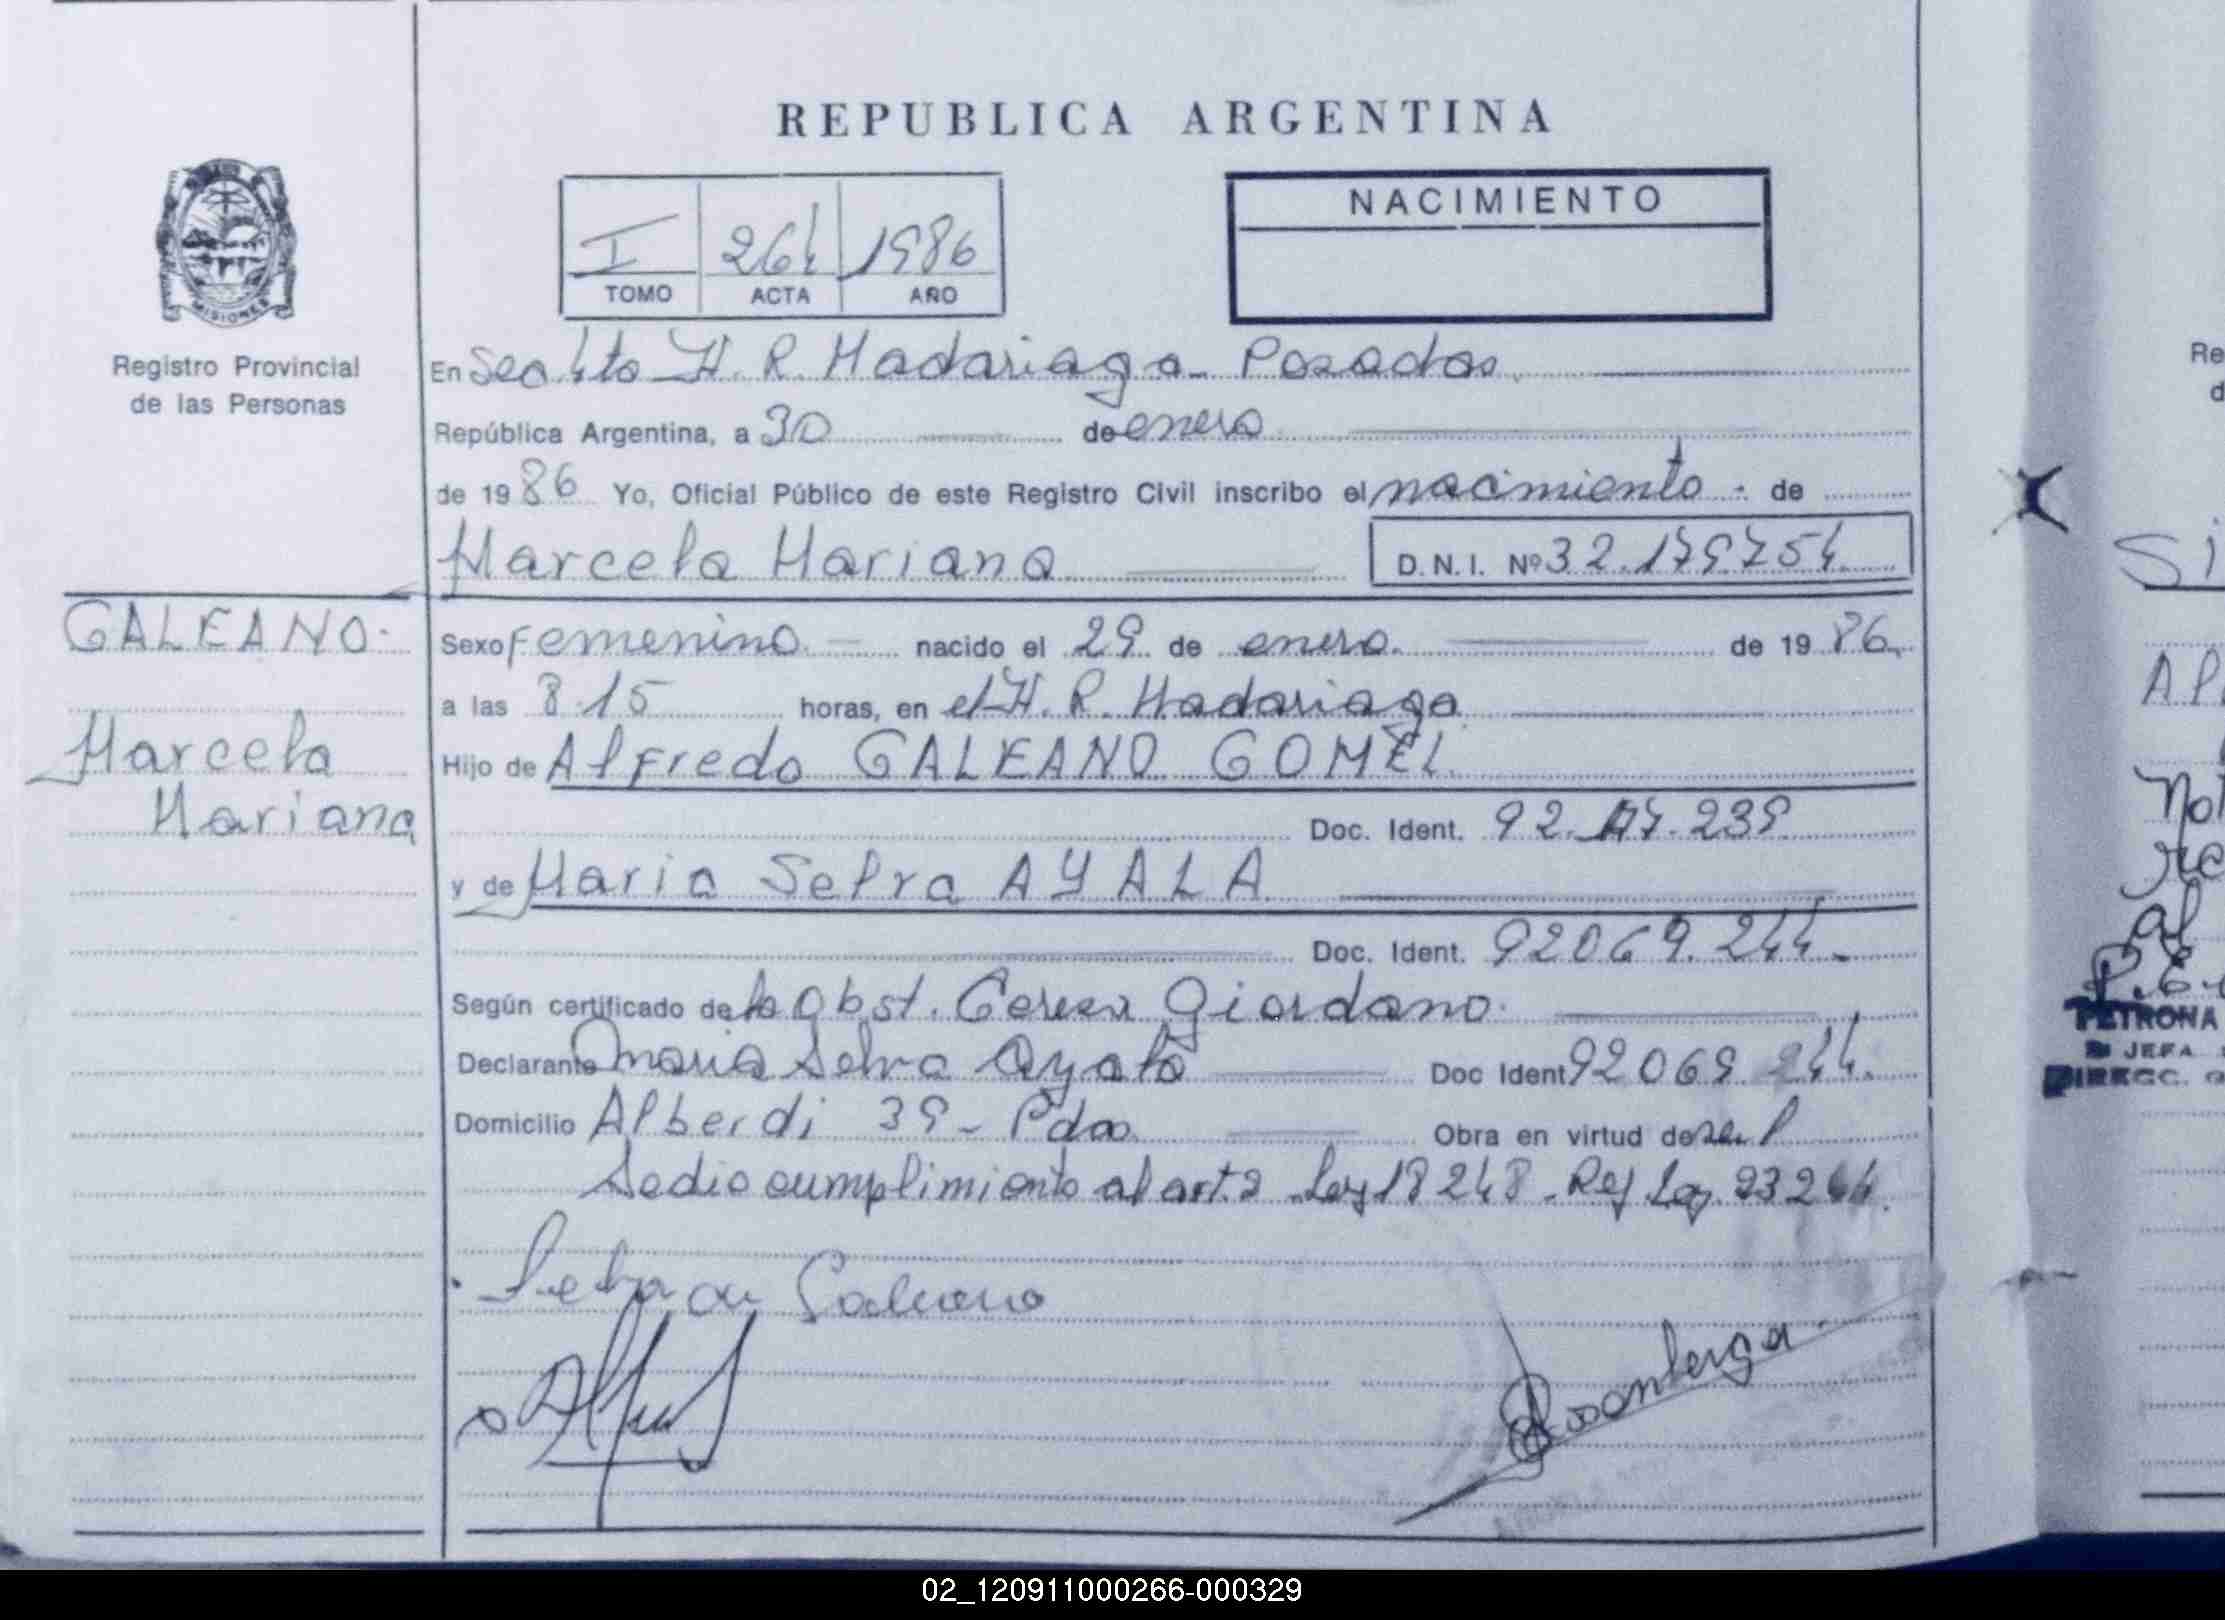 REPUBLICA ARGENTINA
I 264 1986
TOMO ACTA AÑO
NACIMIENTO
MISIONES
Registro Provincial
de las Personas
En H. R. Madariaga - Posadas
República Argentina, a 30 de enero
de 1986 Yo, Oficial Público de este Registro Civil inscribo el nacimiento - de
Marcela Mariana D.N.I. Nº 32.179754
GALEANO
Marcela
Mariana
Sexo Femenino nacido el 29 de enero de 1986
a las 8.15 horas, en el H. R. Madariaga
Hijo de Alfredo GALEANO GOMEL
Doc. Ident. 92. 239
y de Maria Selva AYALA
Doc. Ident. 92069.244.-
Según certificado de la Obst. Giordano
Declarante Maria Selva Ayala Doc Ident 92069 244.
Domicilio Alberdi 39 - Pdas Obra en virtud de
Se dio cumplimiento al art. 2 Ley 18248 - Ley 23264
Selva de Galeano
PETRONA
JEFA
DIRECC.
02_120911000266-000329